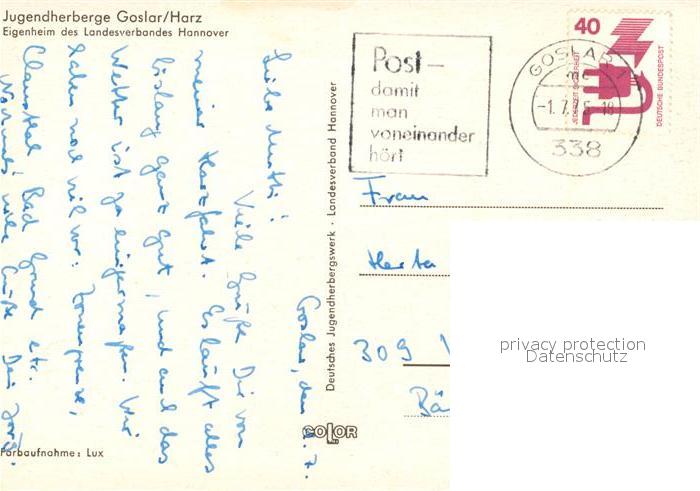 Jugendherberge Goslar/Harz
Eigenheim des Landesverbandes Hannover
Goslar, den 1. 7.
Liebe Mutti!
Viele Grüße Dir von
meiner Harzfahrt. Es läuft alles
bislang ganz gut, und auch das
Wetter ist so einigermaßen. Wir
haben noch viel vor: Zonengrenze,
Clausthal, Bad Grund etc.
Nochmals viele Grüße Dein Jörg.
Farbaufnahme: Lux
Deutsches Jugendherbergswerk · Landesverband Hannover
COLOR
Post –
damit
man
voneinander
hört
GOSLAR 1
-1.7.76-18
338
40
JEDERZEIT SICHERHEIT
DEUTSCHE BUNDESPOST
Frau
Herta
309
privacy protection
Datenschutz